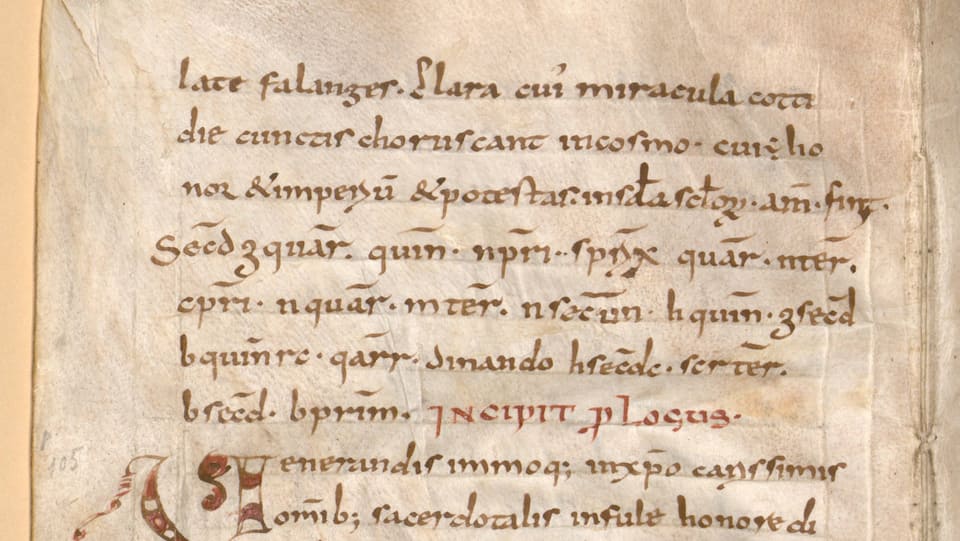 late falanges. Clara cui' miracula cotti
die cunctis chorus cant incosmo. cui ę ho
nor & imperiū & potestas. in scła scłorꝝ. am̄. finit.
Secd̄ ʒ quār. quin̄. n pri̅. quār. n ter̄.
c pri̅. n quār. m ter̄. n secūn. h quin̄. ʒ secd̄
b quin̄ rc. qārr. dinando h sec̄dc. ter̄.
b secd̄. b prim̄. INCIPIT PLOGUS.
Venerandis immoq; inxp̄o carissimis
omib; sacerdotalis infule honore di
105